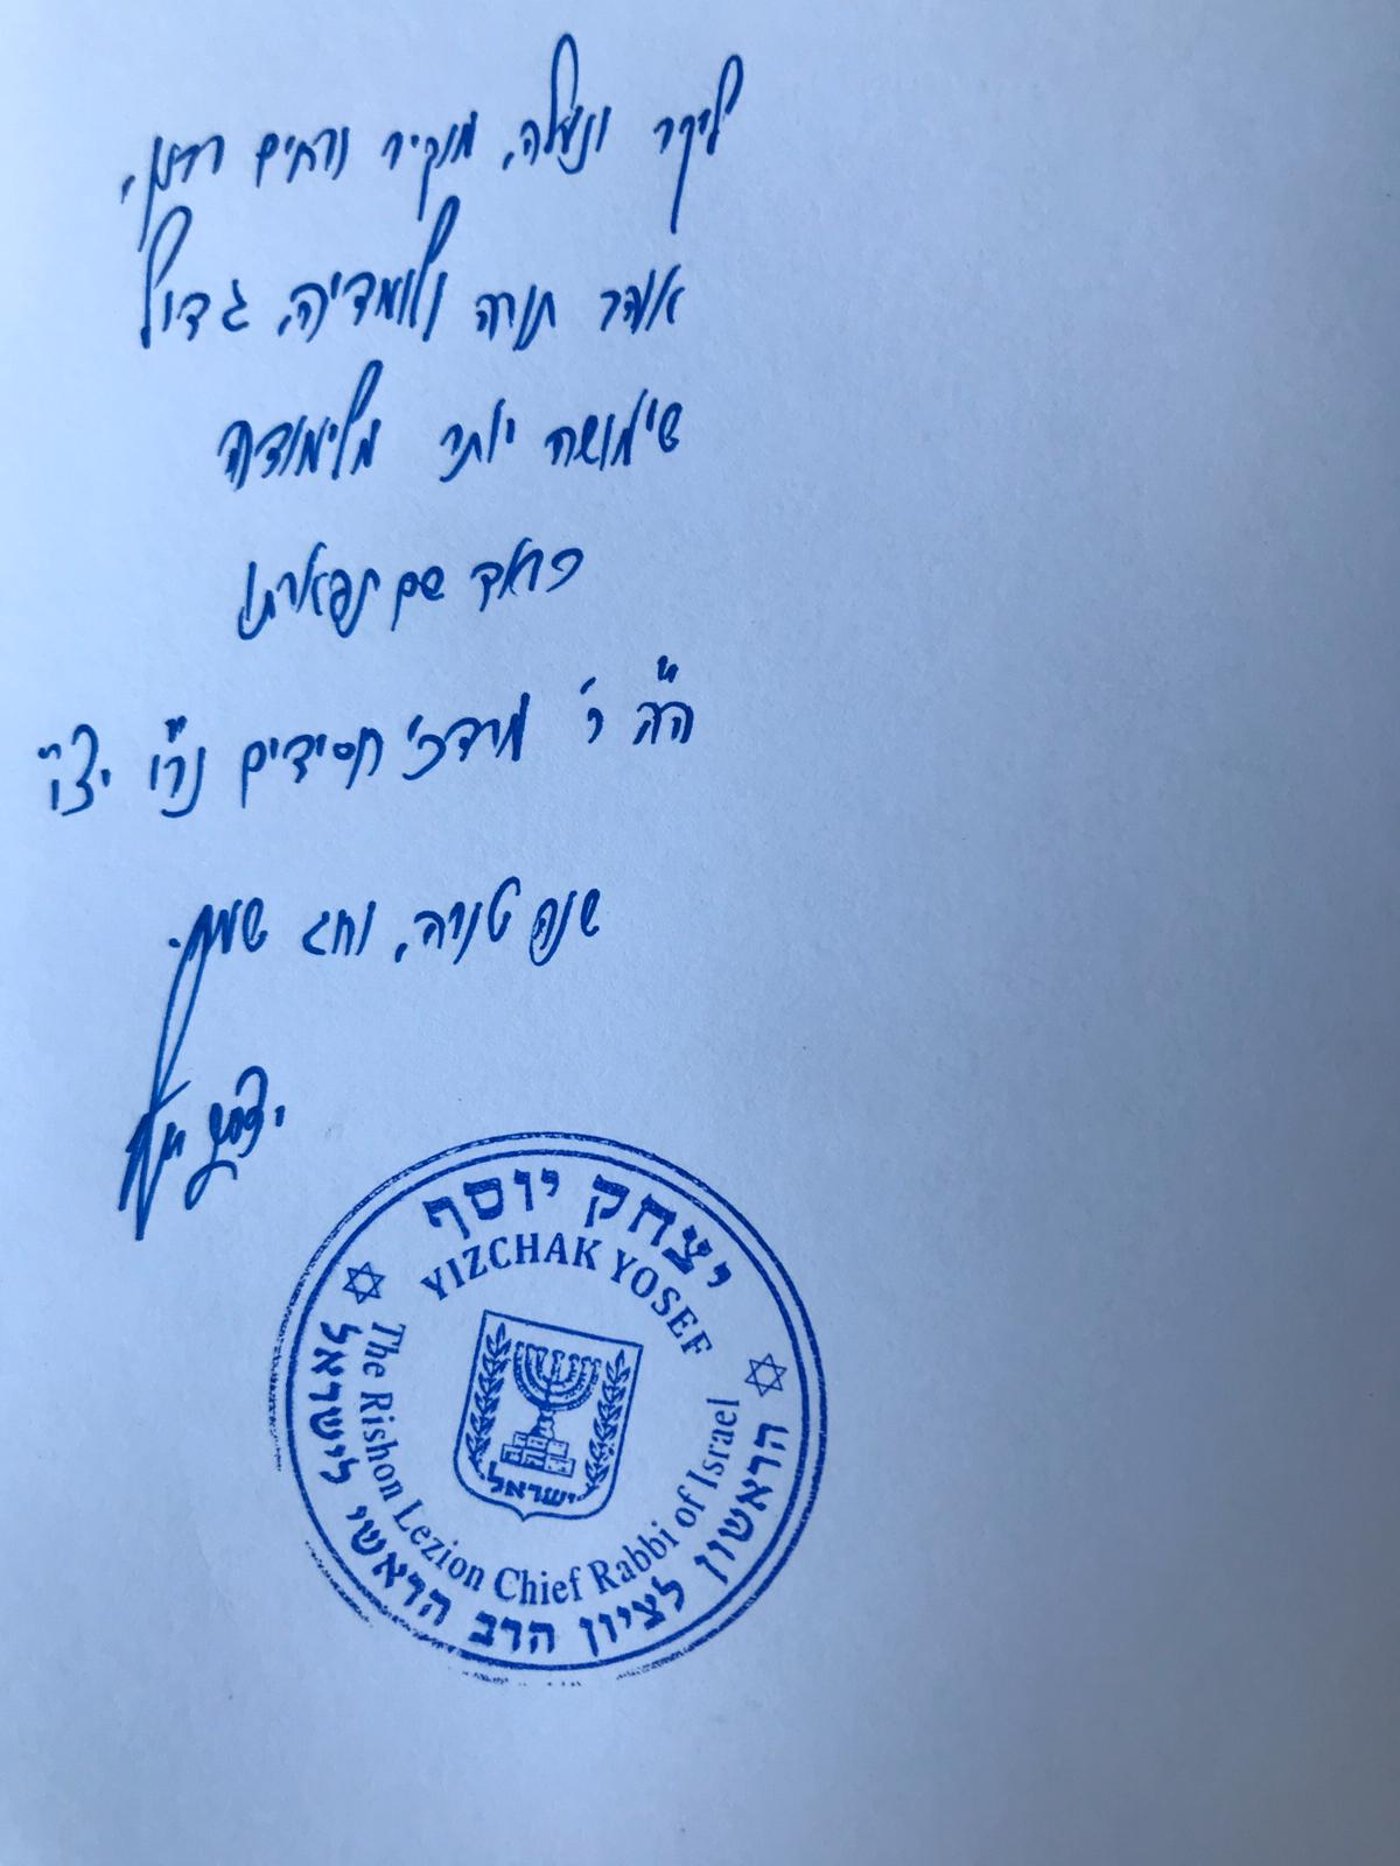 ליקר ונעלה, מוקיר ורחים רבנן,
אוהב תורה ולומדיה, גדול
שימושה יותר מלימודה
כראב שם תפארתו
הה"ה ר' מרדכי חסידים נר"ו יצ"ו
שנה טובה, וחג שמח.
יצחק יוסף
יצחק יוסף
YIZCHAK YOSEF
ישראל
The Rishon Lezion Chief Rabbi of Israel
הראשון לציון הרב הראשי לישראל